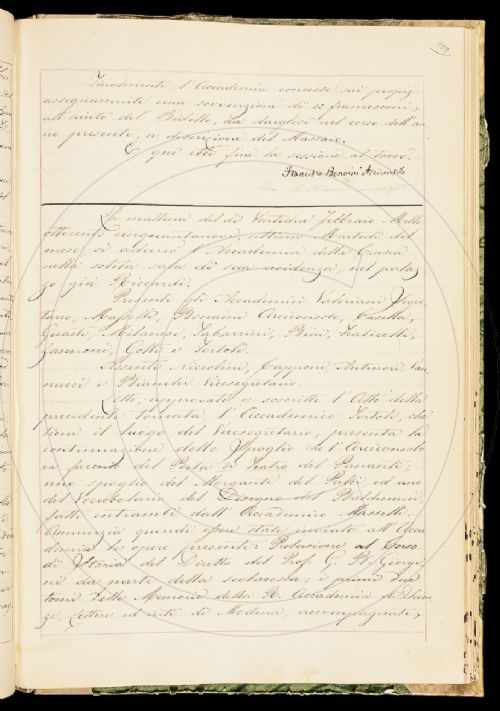 Finalmente, l'Accademia concesse sui propri
assegnamenti una sovvenzione di 12 francesconi,
all'aiuto del Bidello, da darglesi nel corso dell'an-
no presente, a discrezione del Massaio.
E qui ebbe fine la sessione al tocco.
Francesco Bonaini Arciconsolo
La mattina del dì Ventidue Febbraio Mille
ottocento cinquantanove, ultimo Martedì del
mese, si adunò l'Accademia della Crusca
nella solita sala di sua residenza, nel palaz-
zo già Riccardi.
Presenti gli Accademici Valeriani Segre-
tario, Masselli, Bonaini Arciconsolo, Casella,
Guasti, Milanesi, Tabarrini, Bini,
Zannoni, Gotti e Tortoli.
Assenti Niccolini, Capponi, Antinori, Van-
nucci e Bianchi Vicesegretario.
Letto, approvato e soscritto l'Atto della
precedente tornata, l'Accademico Tortoli, che
tiene il luogo del Vicesegretario, presenta la
continuazione dello Spoglio che l'Arciconsolo
va facendo del Poeta di Teatro del Pananti;
uno spoglio del Morgante del Pulci, ed uno
del Vocabolario del Disegno del Baldinucci
fatti entrambi dall'Accademico Masselli.
Annunzia quindi essere state inviate all'Acca-
demia le opere presenti: Prolusione al Corso
di Storia del Diritto del Prof. G. B. Giorgi-
ni da parte della
della Memorie della R. Accademia di Scien-
ze, Lettere ed arti di Modena, accompagnati,